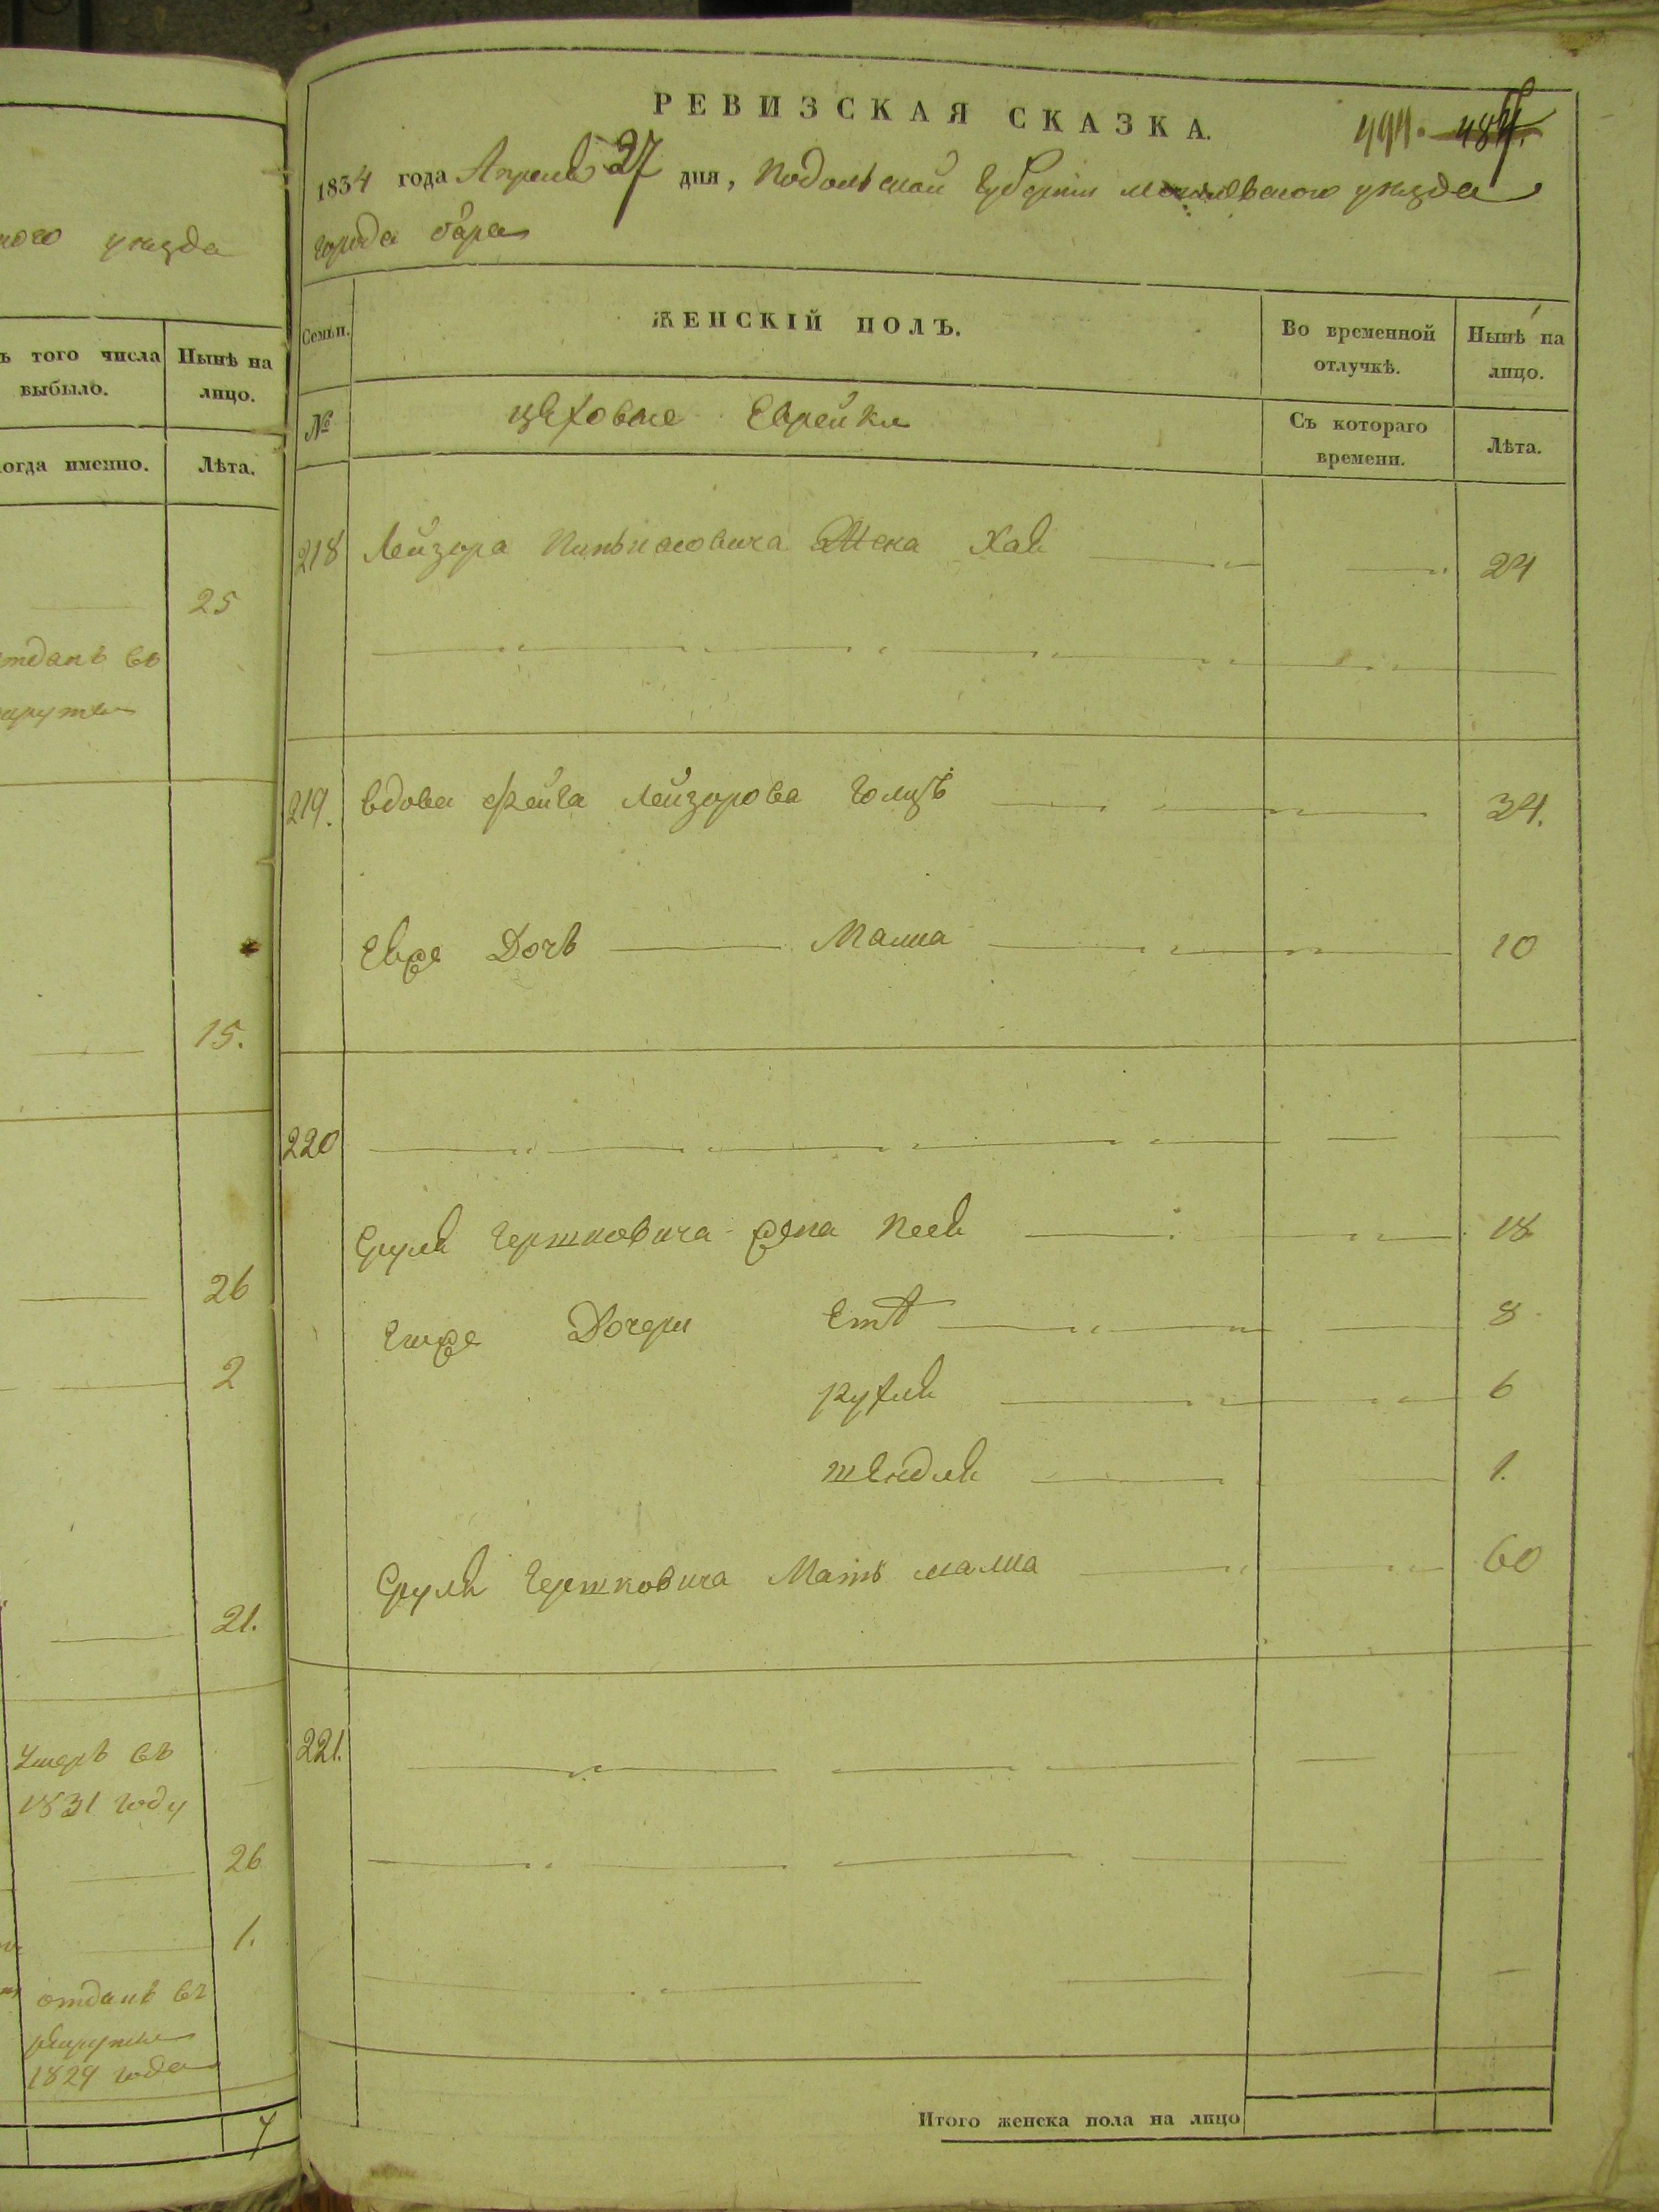 ного уезда
ъ того числа выбыло.
Нынѣ на лицо.
когда именно.
Лѣта.
25
отданъ въ
рекруты
15.
26
2
21.
Умеръ въ
1831 году
26
1.
отданъ въ
рекруты
1829 года
7
РЕВИЗСКАЯ СКАЗКА.
494. 484.
1834 года Апреля 27 дня, Подольской Губернии уезда
города бара
Семьи.
ЖЕНСКІЙ ПОЛЪ.
Во временной отлучкѣ.
Нынѣ на лицо.
№
цеховые Еврейки
Съ котораго времени.
Лѣта.
218 Лейзора Пинькасовича Жена Хая 24
219. вдова Фейга Лейзорова 34.
Евже Дочь Малка 10
220
Сруля Гершковича жена Песя 18
Егоже Дочери Етя 8
Рухля 6
Шендля 1.
Сруля Гершковича Мать малка 60
221.
Итого женска пола на лицо